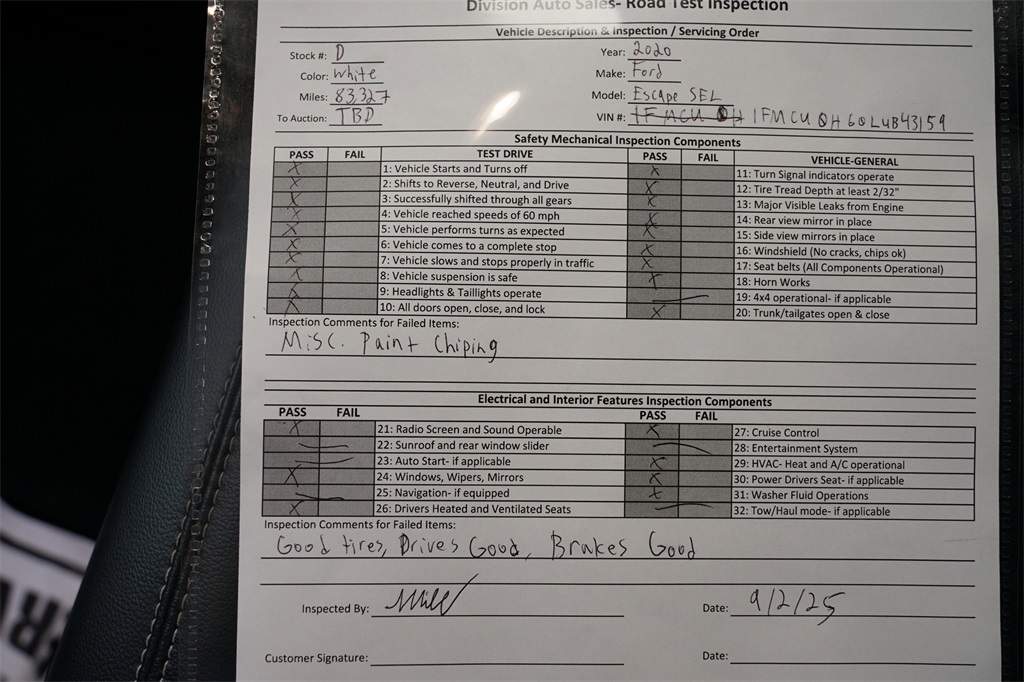 Division Auto Sales- Road Test Inspection
Vehicle Description & Inspection / Servicing Order
Stock #: D Year: 2020
Color: White Make: Ford
Miles: 83,327 Model: Escape SEL
To Auction: TBD VIN #: 1FMCU 0H 1FMCU0H60LUB43159
Safety Mechanical Inspection Components
PASS FAIL TEST DRIVE PASS FAIL VEHICLE-GENERAL
X 1: Vehicle Starts and Turns off X 11: Turn Signal indicators operate
X 2: Shifts to Reverse, Neutral, and Drive X 12: Tire Tread Depth at least 2/32"
X 3: Successfully shifted through all gears X 13: Major Visible Leaks from Engine
X 4: Vehicle reached speeds of 60 mph X 14: Rear view mirror in place
X 5: Vehicle performs turns as expected X 15: Side view mirrors in place
X 6: Vehicle comes to a complete stop X 16: Windshield (No cracks, chips ok)
X 7: Vehicle slows and stops properly in traffic X 17: Seat belts (All Components Operational)
X 8: Vehicle suspension is safe X 18: Horn Works
X 9: Headlights & Taillights operate 19: 4x4 operational- if applicable
X 10: All doors open, close, and lock X 20: Trunk/tailgates open & close
Inspection Comments for Failed Items:
Misc. Paint Chiping
Electrical and Interior Features Inspection Components
PASS FAIL PASS FAIL
X 21: Radio Screen and Sound Operable X 27: Cruise Control
22: Sunroof and rear window slider 28: Entertainment System
23: Auto Start- if applicable X 29: HVAC- Heat and A/C operational
X 24: Windows, Wipers, Mirrors X 30: Power Drivers Seat- if applicable
25: Navigation- if equipped X 31: Washer Fluid Operations
X 26: Drivers Heated and Ventilated Seats 32: Tow/Haul mode- if applicable
Inspection Comments for Failed Items:
Good tires, Drives Good, Brakes Good
Inspected By: Date: 9/2/25
Customer Signature: Date: